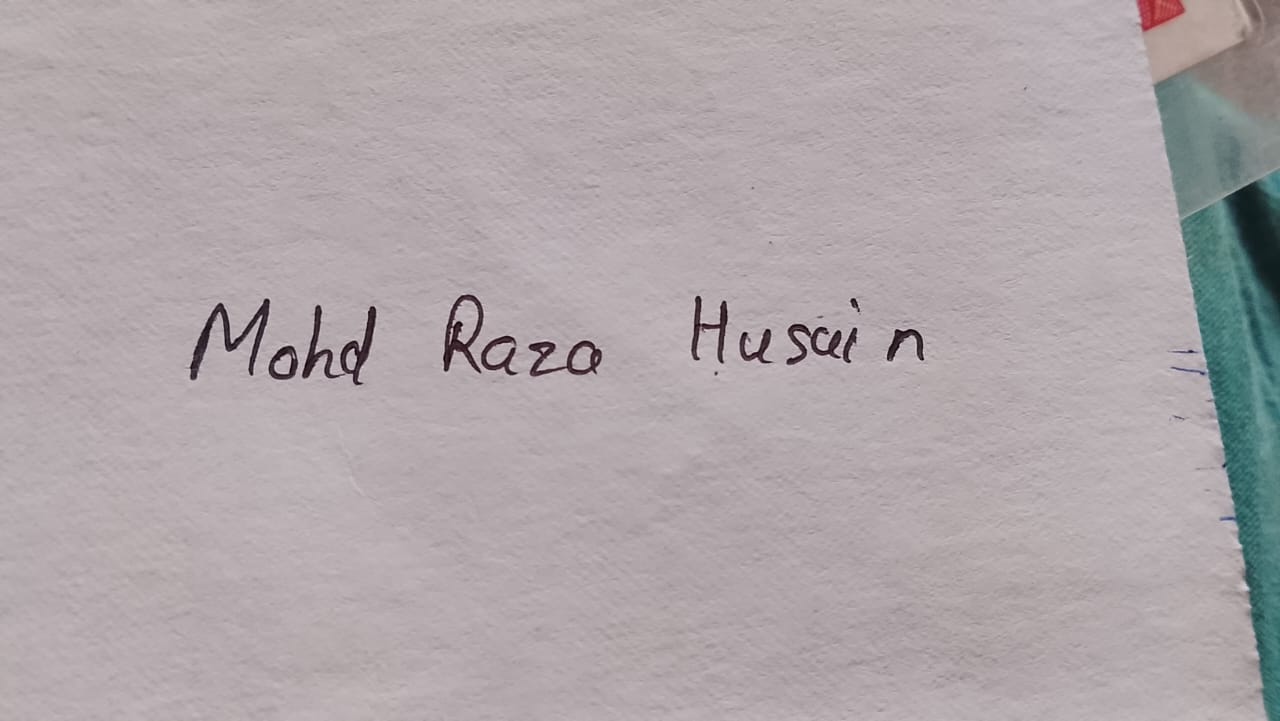 Mohd Raza Husain